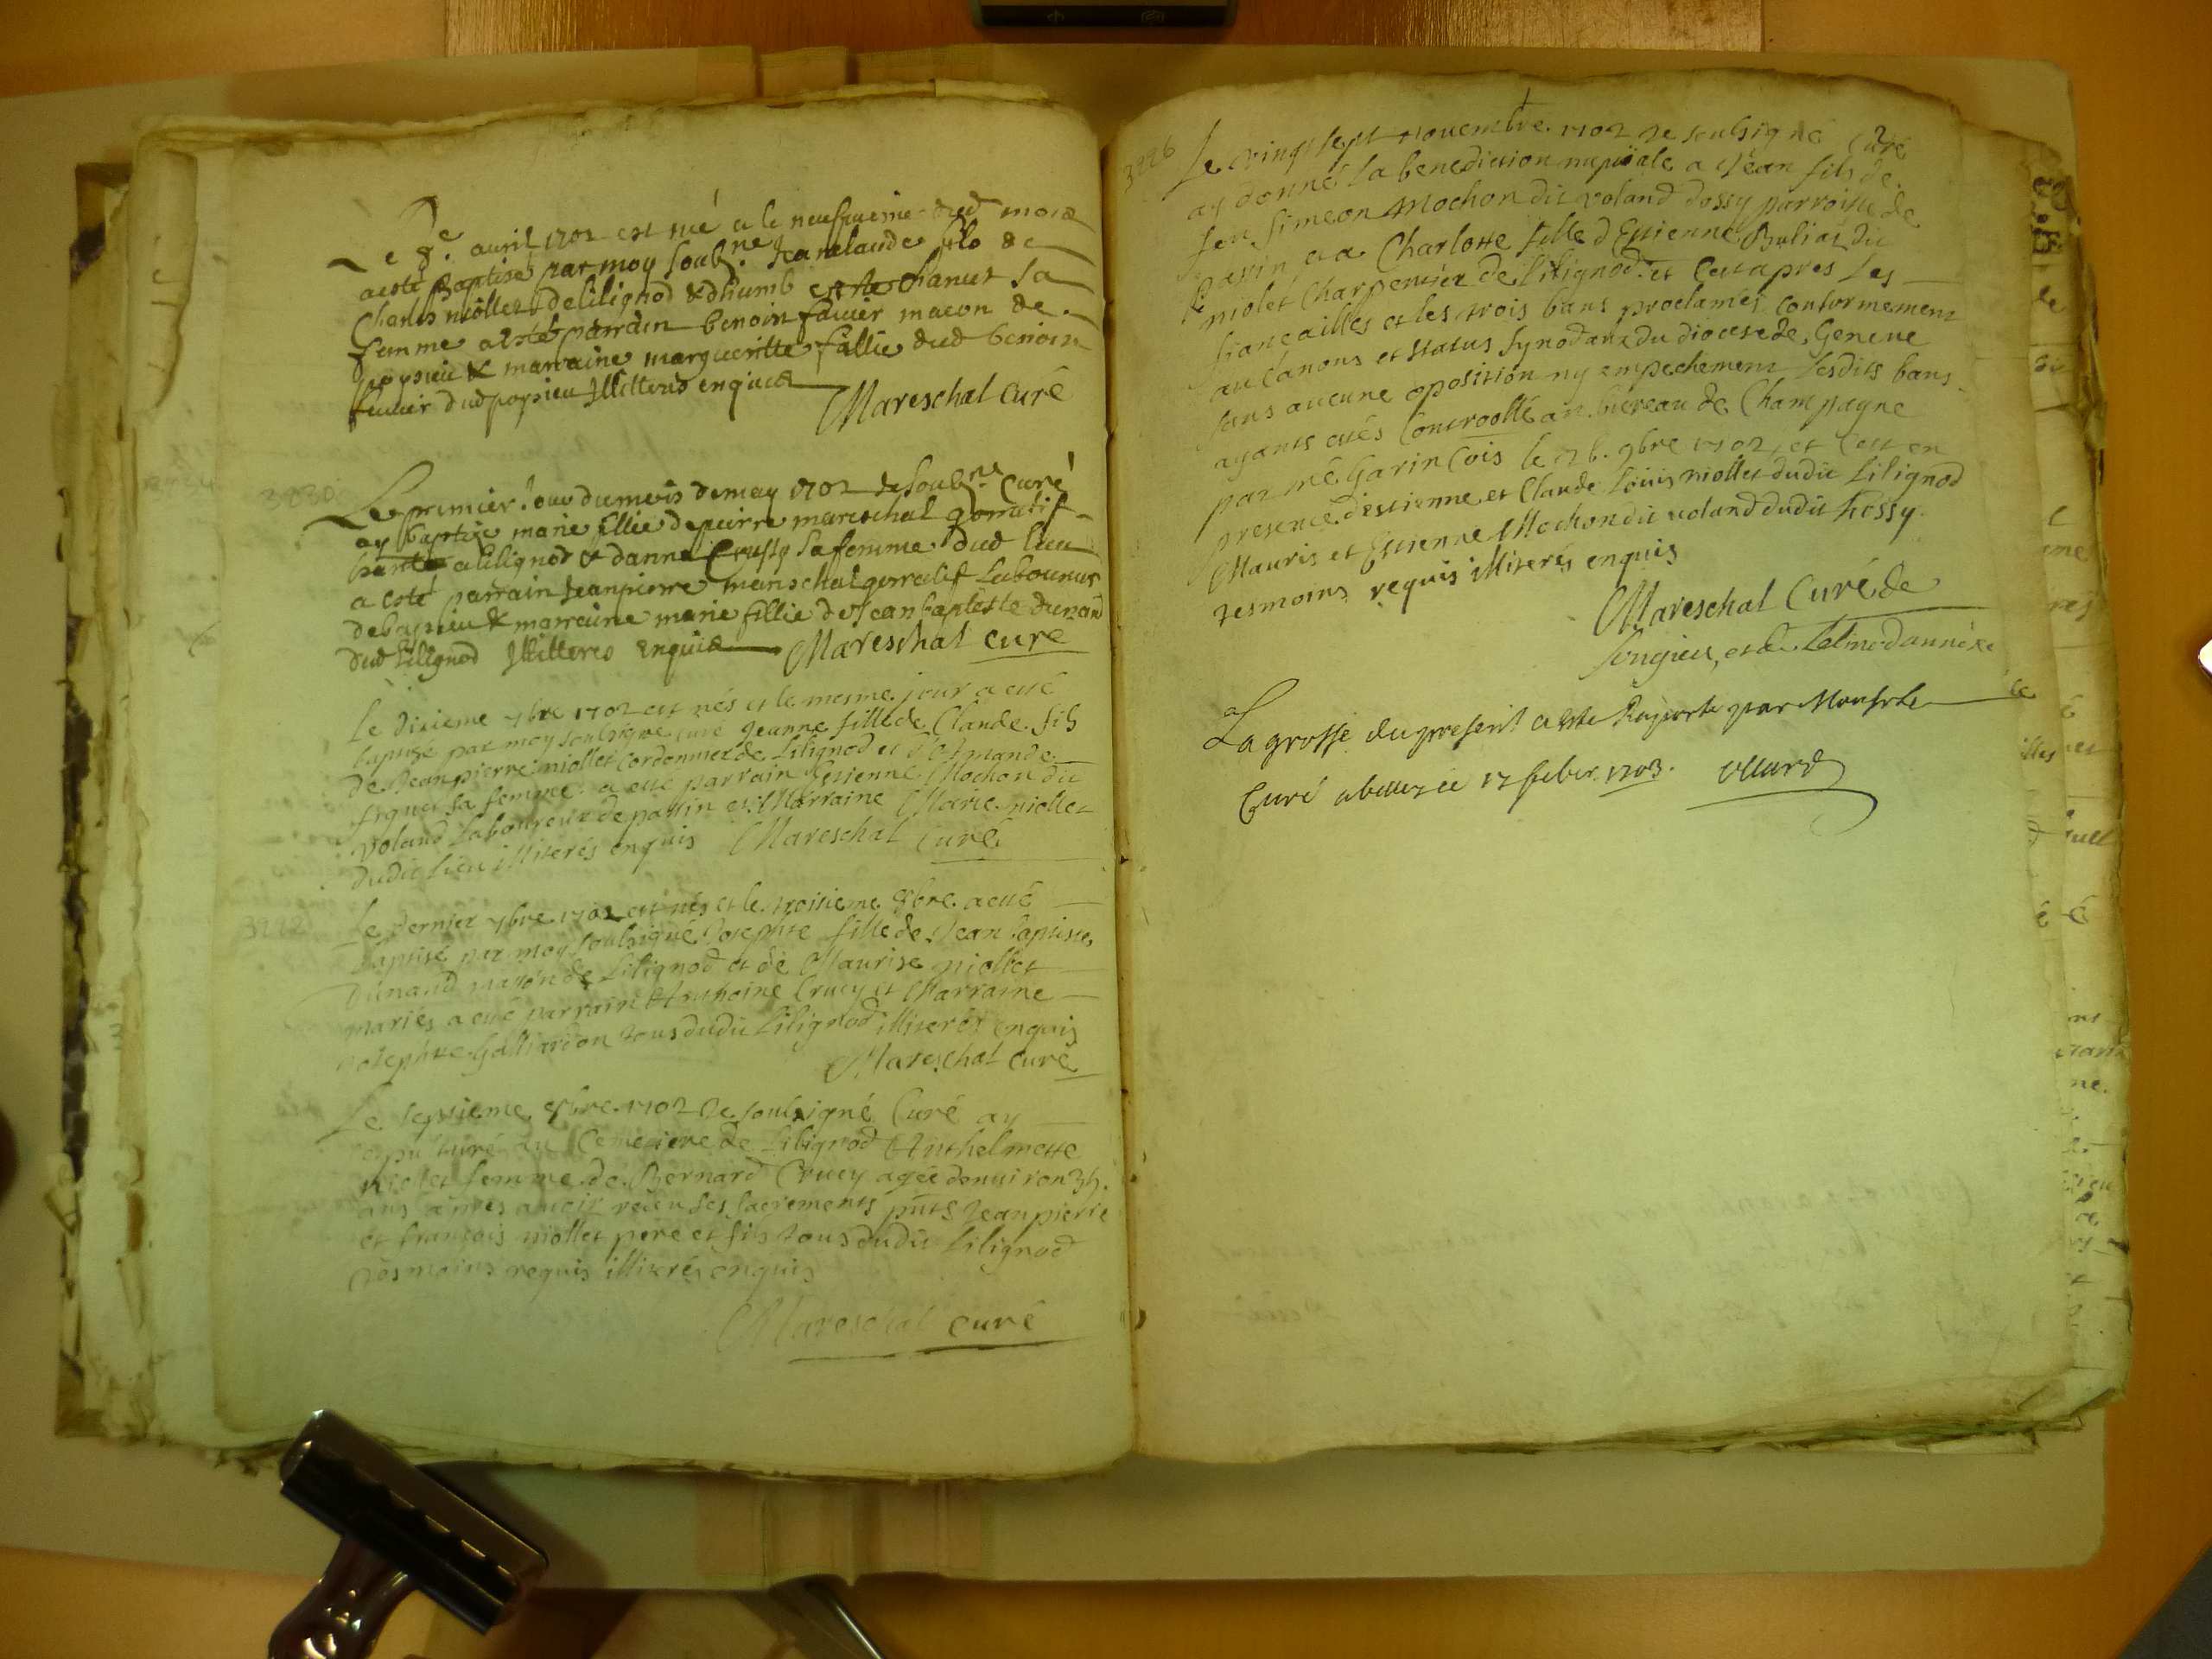 Le 8e. auril 1702 est né a le neufuieme dud mois
a esté Baptisé par moy soubz.ne Jeanclaude filz de
Charles niollet de lilignod & dhumb Chanut sa
femme a esté parrain benoin fauier macon de
popsieu & marraine margueritte fillie dud benoin
fauier dud popsieu Illitteres enquis
Mareschal curé
3230
Le premier Jour du mois de may 1702 Je soubz.ne Curé
ay baptize marie fillie de pierre mareschal gorratif
a lilignod & danne Crussy sa femme dud lieu
a esté parrain Jeanpierre mareschal gorratif Laboureur
de & marraine marie fillie de Jean baptiste dunand
dud Lilignod Illitteres Enquis Mareschal curé
Le dixieme 7bre 1702 est nés et le mesme jour a esté
baptizé par moy soubsigné curé Jeanne fille de Claude fils
de Jeanpierre niollet Cordonnier de Lilignod et d'
sa femme a esté parrain Estienne Mochon dit
Voland Laboureur de passin et Marraine Marie niollet
dudit Lieu illiterés enquis Mareschal Curé
3228
Le dernier 7bre 1702 est nés et le troisieme 8bre a esté
baptisé par moy soubsigné Josephte fille de Jean baptiste
Dunand masson de Lilignod et de Maurise niollet
mariés a esté parrain Anthoine Crucy et Marraine
Josephte Galliardon tous dudit Lilignod illiterés enquis
Mareschal Curé
Le septieme 8bre 1702 Je soubsigné Curé ay
sepulturé au Cemetiere de Lilignod Anthelmette
niollet femme de Bernard Crucy agée denuiron 35.
ans apres auoir receu ses sacrements pnts Jeanpierre
et françois niollet pere et fils tous dudit Lilignod
tesmoins requis illiterés enquis
Mareschal curé
3226
Le vingt sept nouembre 1702 Je soubsigné Curé
ay donné la benediction nuptiale a Jean fils de
feu Simeon Mochon dit voland dossy parroisse de
passin et a Charlotte fille d'Estienne Buliat dit
niolet Charpentier de Lilignod et C'est apres Les
fiancailles et les trois bans proclamés conformement
au Canons et Status Synodaux du diocese de Geneue
sans aucune oposition ny empechement Lesdits bans
ayants estés Controollé au bureau de Champagne
par me Garin Cois le 9bre 1702 et C'est en
presence d'estienne et Claude Louis niollet dudit Lilignod
Mauris et Estienne Mochon dit voland dudit hossy
tesmoins requis illiterés enquis
Mareschal Curé de
Songieu, et de Lilignod annéxe
La grosse du present a esté Raporté par Monsr le
Curé a belley ce 17 feber. 1703.